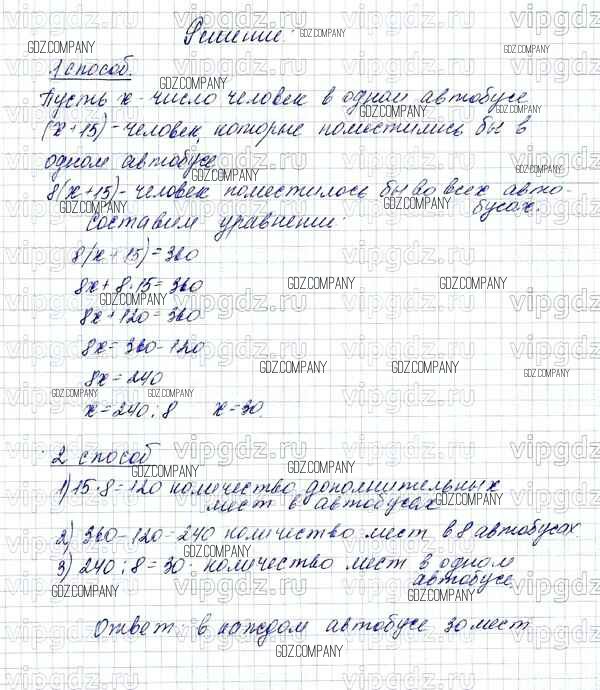 Решение:
1 способ
Пусть х - число человек в одном автобусе
(х+15) - человек, которые поместились бы в
одном автобусе
8(х+15) - человек поместилось бы во всех авто-
бусах.
Составим уравнение:
8(х+15)=360
8х+8·15=360
8х+120=360
8х=360-120
8х=240
х=240:8 х=30
2 способ
1) 15·8=120 количество дополнительных
мест в автобусах
2) 360-120=240 количество мест в 8 автобусах
3) 240:8=30 количество мест в одном
автобусе
Ответ: в каждом автобусе 30 мест
vipgdz.ru
GDZ.COMPANY